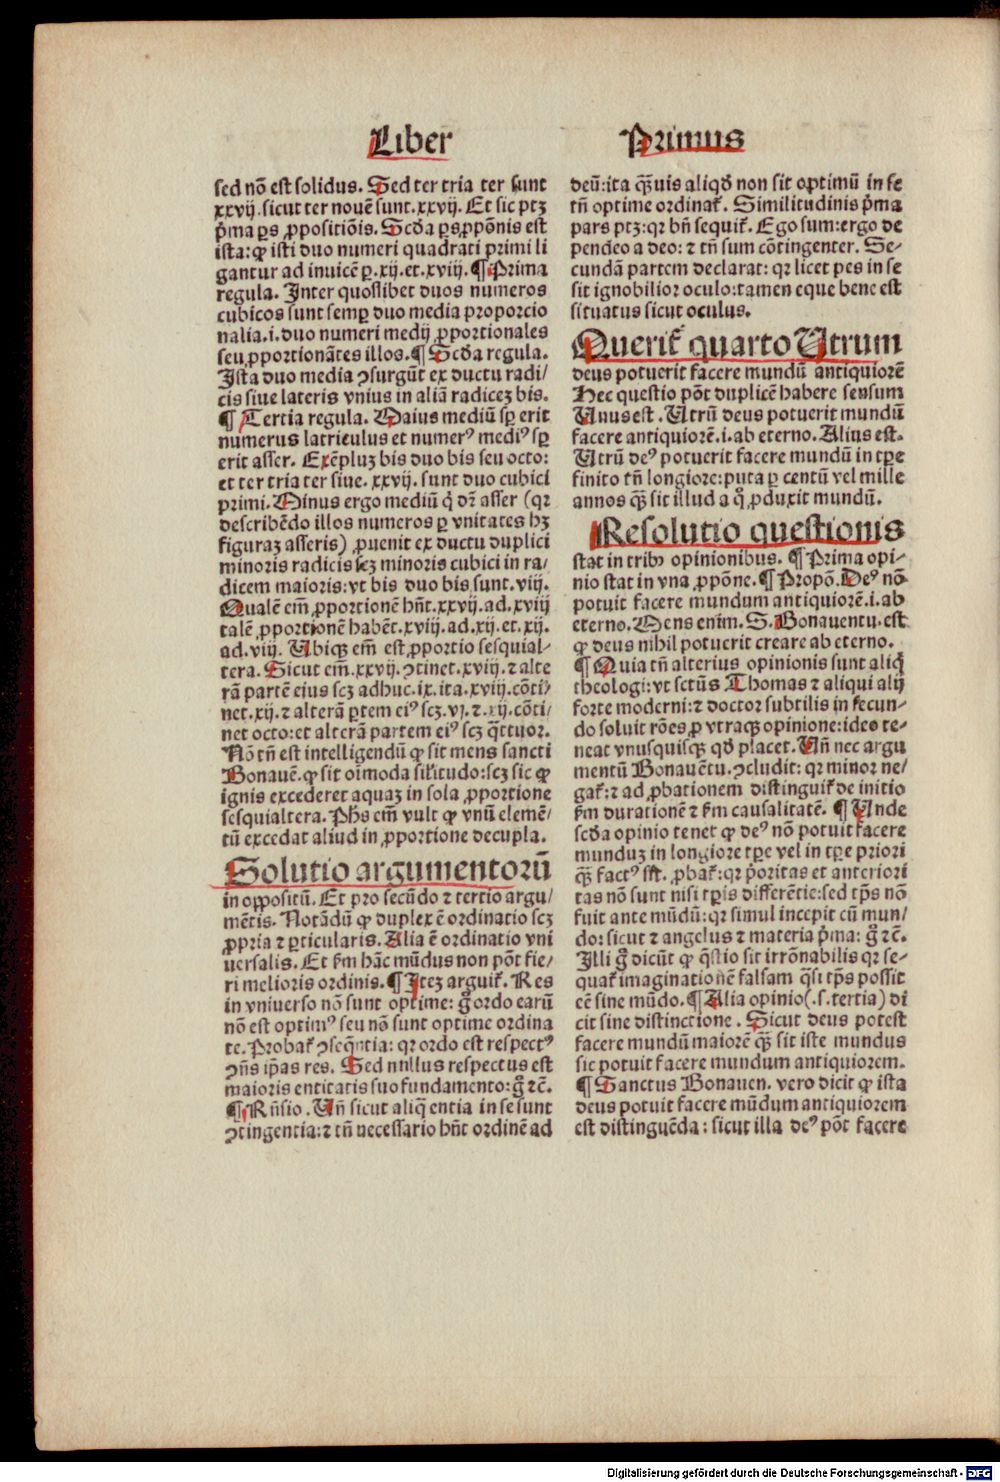 Liber Primus
sed nō est solidus. Sed ter tria ter sunt
xxvij. sicut ter nouē sunt. xxvij. Et sic ptꝫ
p̄ma ꝑs ꝓpositiōis. Scd̄a ꝑs ꝓpōnis est
ista: ꝙ isti duo numeri quadrati primi li
gantur ad inuicē ꝑ. xij. et. xviij. ¶ Prima
regula. Inter quoslibet duos numeros
cubicos sunt semꝑ duo media proporcio
nalia. i. duo numeri medij ꝓportionales
seu ꝓportionātes illos. ¶ Scd̄a regula.
Ista duo media ꝯsurgūt ex ductu radi/
cis siue lateris vnius in aliā radiceꝫ bis.
¶ Tertia regula. Maius mediū sꝑ erit
numerus laterculus et numerꝰ mediꝰ sꝑ
erit asser. Exēpluꝫ bis duo bis seu octo:
et ter tria ter siue. xxvij. sunt duo cubici
primi. Minus ergo mediū q̇ dr̄ asser (qꝛ
describēdo illos numeros ꝑ vnitates hꝫ
figuraꝫ asseris) ꝓuenit ex ductu duplici
minoris radicis scꝫ minoris cubici in ra/
dicem maioris: vt bis duo bis sunt. viij.
Qualē em̄ ꝓportionē hn̄t. xxvij. ad. xviij
talē ꝓportionē habēt. xviij. ad. xij. et. xij.
ad. viij. Ubiqꝫ em̄ est ꝓportio sesquial-
tera. Sicut em̄. xxvij. ꝯtinet. xviij. ⁊ alte
rā partē eius scꝫ adhuc. ix. ita. xviij. cōti/
net. xij. ⁊ alterā ꝑtem eiꝰ scꝫ. vj. ⁊. xij. cōti/
net octo: et alterā partem eiꝰ scꝫ q̄ttuor.
Nō tn̄ est intelligendū ꝙ sit mens sancti
Bonauē. ꝙ sit oīmoda sil'itudo: scꝫ sic ꝙ
ignis excederet aquaꝫ in sola ꝓportione
sesquialtera. Ph̄s em̄ vult ꝙ vnū elemē/
tū excedat aliud in ꝓportione decupla.
Solutio argumentorū
in oppositū. Et pro secūdo ⁊ tertio argu/
mētis. Notādū ꝙ duplex ē ordinatio scꝫ
ꝓpria ⁊ ꝑticularis. Alia ē ordinatio vni
uersalis. Et ẜm hāc mūdus non pōt fie/
ri melioris ordinis. ¶ Iteꝫ arguit᷑. Res
in vniuerso nō sunt optime: g̊ ordo earū
nō est optimꝰ seu nō sunt optime ordina
te. Probat᷑ ꝯseq̄ntia: qꝛ ordo est respectꝰ
ꝯn̄s ip̄as res. Sed nullus respectus est
maioris entitatis suo fundamento: g̊ ⁊c̄.
¶ Rn̄sio. Un̄ sicut aliq̄ entia in se sunt
ꝯtingentia: ⁊ tn̄ necessario hn̄t ordinē ad
deū: ita q̄ꝫuis aliqd̄ non sit optimū in se
tn̄ optime ordinat᷑. Similitudinis p̄ma
pars ptꝫ: qꝛ bn̄ sequit᷑. Ego sum: ergo de
pendeo a deo: ⁊ tn̄ sum cōtingenter. Se-
cundā partem declarat: qꝛ licet pes in se
sit ignobilior oculo: tamen eque bene est
situatus sicut oculus.
Querit᷑ quarto Utrum
deus potuerit facere mundū antiquiorē
Hec questio pōt duplicē habere sensum
Unus est. Utrū deus potuerit mundū
facere antiquiorē. i. ab eterno. Alius est.
Utrū deꝰ potuerit facere mundū in tꝑe
finito tn̄ longiore: puta ꝑ centū vel mille
annos q̄ꝫ sit illud a q̊ ꝓduxit mundū.
Resolutio questionis
stat in tribꝰ opinionibus. ¶ Prima opi-
nio stat in vna ꝓpōne. ¶ Propō. Deꝰ nō
potuit facere mundum antiquiorē. i. ab
eterno. Mens enim. S. Bonauentu. est
ꝙ deus nihil potuerit creare ab eterno.
¶ Quia tn̄ alterius opinionis sunt aliq̇
theologi: vt sctūs Thomas ⁊ aliqui alij
forte moderni: ⁊ doctor subtilis in secun-
do soluit rōes ꝓ vtraqꝫ opinione: ideo te-
neat vnusquisqꝫ qd̄ placet. Un̄ nec argu
mentū Bonauētu. ꝯcludit: qꝛ minor ne/
gat᷑: ⁊ ad ꝓbationem distinguit᷑ de initio
ẜm durationē ⁊ ẜm causalitatē. ¶ Unde
scd̄a opinio tenet ꝙ deꝰ nō potuit facere
munduꝫ in longiore tꝑe vel in tꝑe priori
q̄ꝫ factꝰ sit. ꝓbat᷑: qꝛ p̄oritas et anteriori
tas nō sunt nisi tꝑis differētie: sed tp̄s nō
fuit ante mūdū: qꝛ simul incepit cū mun/
do: sicut ⁊ angelus ⁊ materia p̄ma: g̊ ⁊c̄.
Illi g̊ dicūt ꝙ q̄stio sit irrōnabilis qꝛ se-
quat᷑ imaginationē falsam q̄si tp̄s possit
eē sine mūdo. ¶ Alia opinio (.s. tertia) di
cit sine distinctione. Sicut deus potest
facere mundū maiorē q̄ꝫ sit iste mundus
sic potuit facere mundum antiquiorem.
¶ Sanctus Bonauen. vero dicit ꝙ ista
deus potuit facere mūdum antiquiorem
est distinguēda: sicut illa deꝰ pōt facere
Digitalisierung gefördert durch die Deutsche Forschungsgemeinschaft - DFG